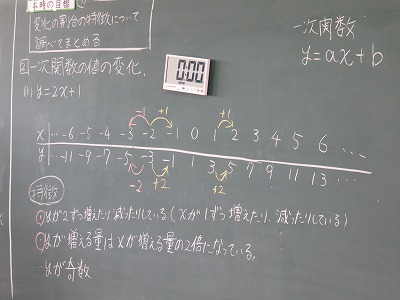 本時の目標
変化の割合の特徴について
調べてまとめる
一次関数
y=ax+b
0:00
一次関数の値の変化、
(1) y=2x+1
-1 +1 +1
x … -6 -5 -4 -3 -2 -1 0 1 2 3 4 5 6 …
y … -11 -9 -7 -5 -3 -1 1 3 5 7 9 11 13 …
-2 +2 +2
特徴
yが2ずつ増えたり減ったりしている(xが1ずつ増えたり、減ったりしている)
yが増える量はxが増える量の2倍になっている。
yが奇数